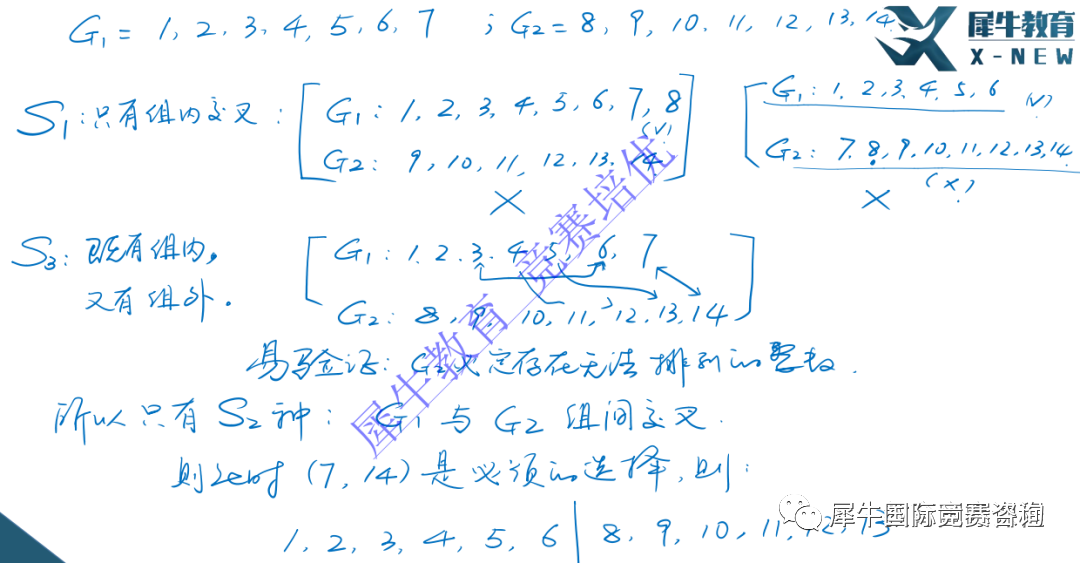 G₁ = 1, 2, 3, 4, 5, 6, 7 ; G₂ = 8, 9, 10, 11, 12, 13, 14
犀牛教育
X-NEW
S₁: 只有组内交叉: G₁: 1, 2, 3, 4, 5, 6, 7, 8 (√) G₁: 1, 2, 3, 4, 5, 6 (√)
G₂: 9, 10, 11, 12, 13, 14 G₂: 7, 8, 9, 10, 11, 12, 13, 14
× × (×)
S₃: 既有组内, G₁: 1, 2, 3, 4, 5, 6, 7
又有组外. G₂: 8, 9, 10, 11, 12, 13, 14
易验证: G₂必定存在无法排列的整数.
所以只有S₂种: G₁与G₂组间交叉.
则此时 (7, 14) 是必须的选择, 则:
1, 2, 3, 4, 5, 6 | 8, 9, 10, 11, 12, 13
犀牛教育 竞赛培优
犀牛国际竞赛咨询